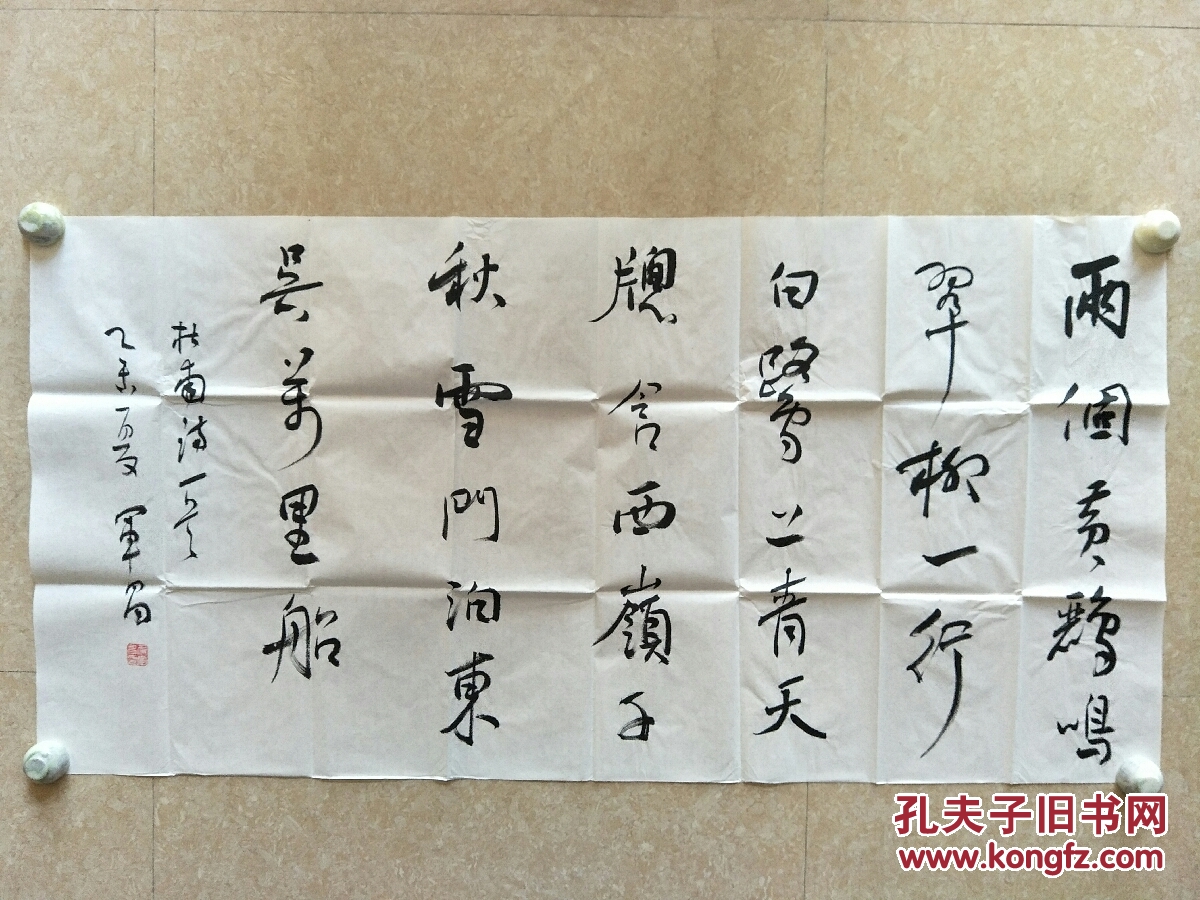 兩個黄鸝鳴
翠柳一行
白鷺上青天
牕含西嶺千
秋雪門泊東
吳萬里船
杜甫詩一首
乙未夏 軍
孔夫子旧书网
www.kongfz.com